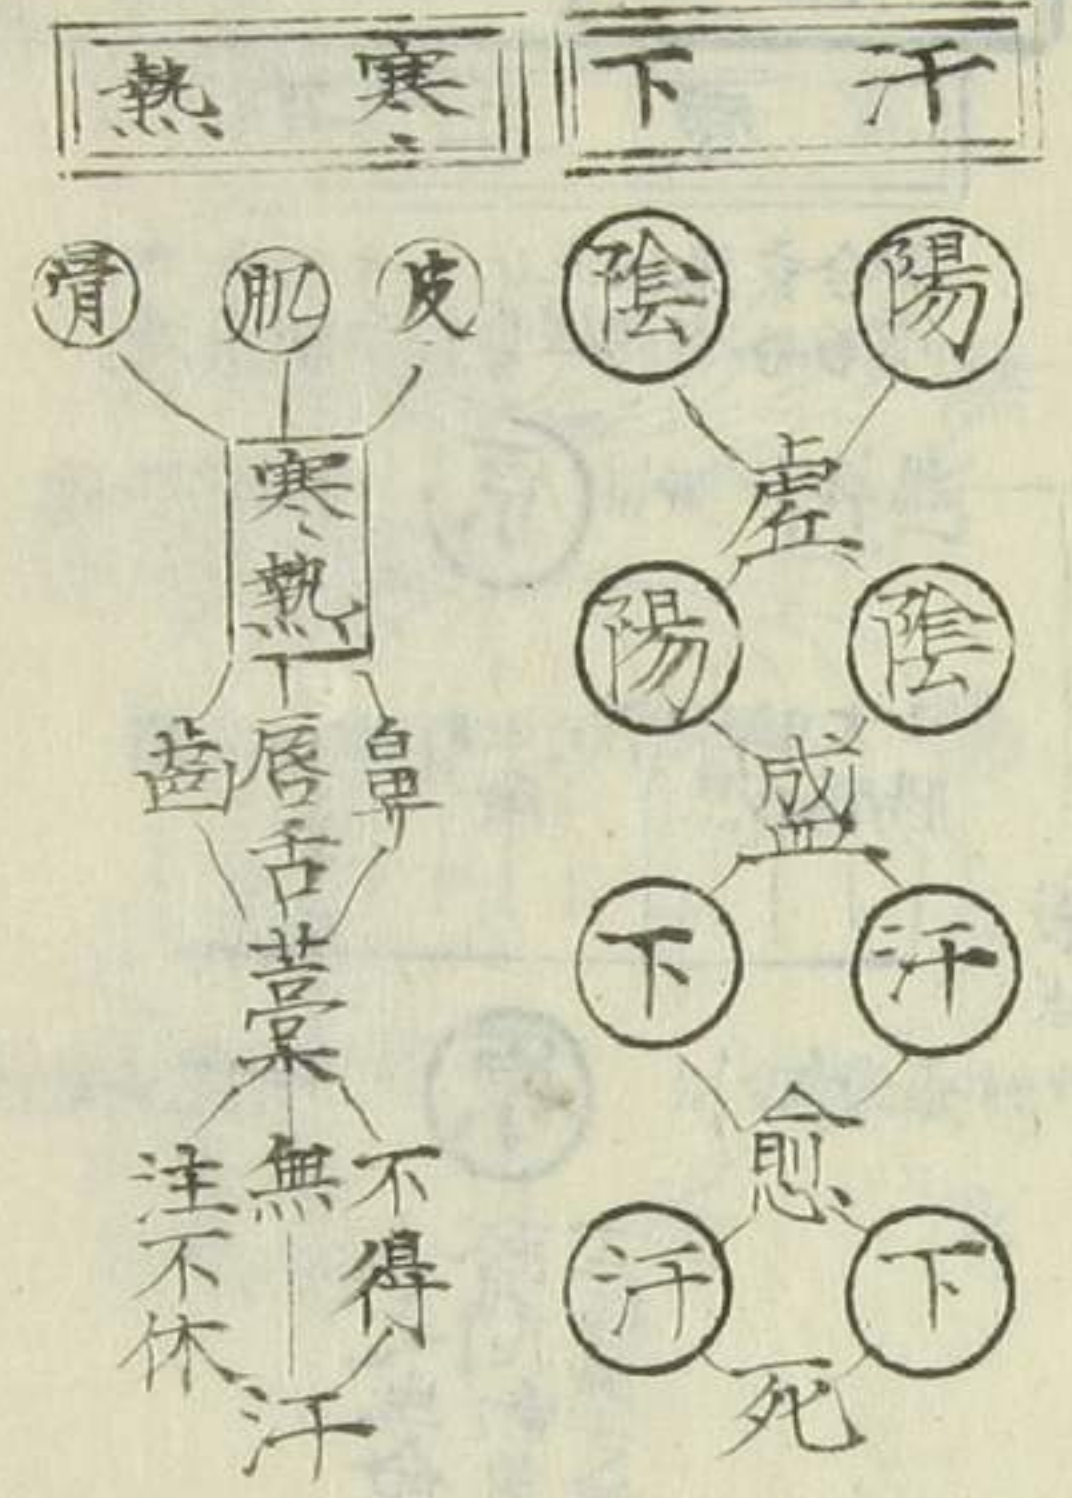 汗下
陽 陰
虛
陰 陽
盛
汗 下
愈
下 汗
死
寒熱
皮 肌 骨
寒熱
鼻 唇舌 齒
藁
不得 無 注不休
汗